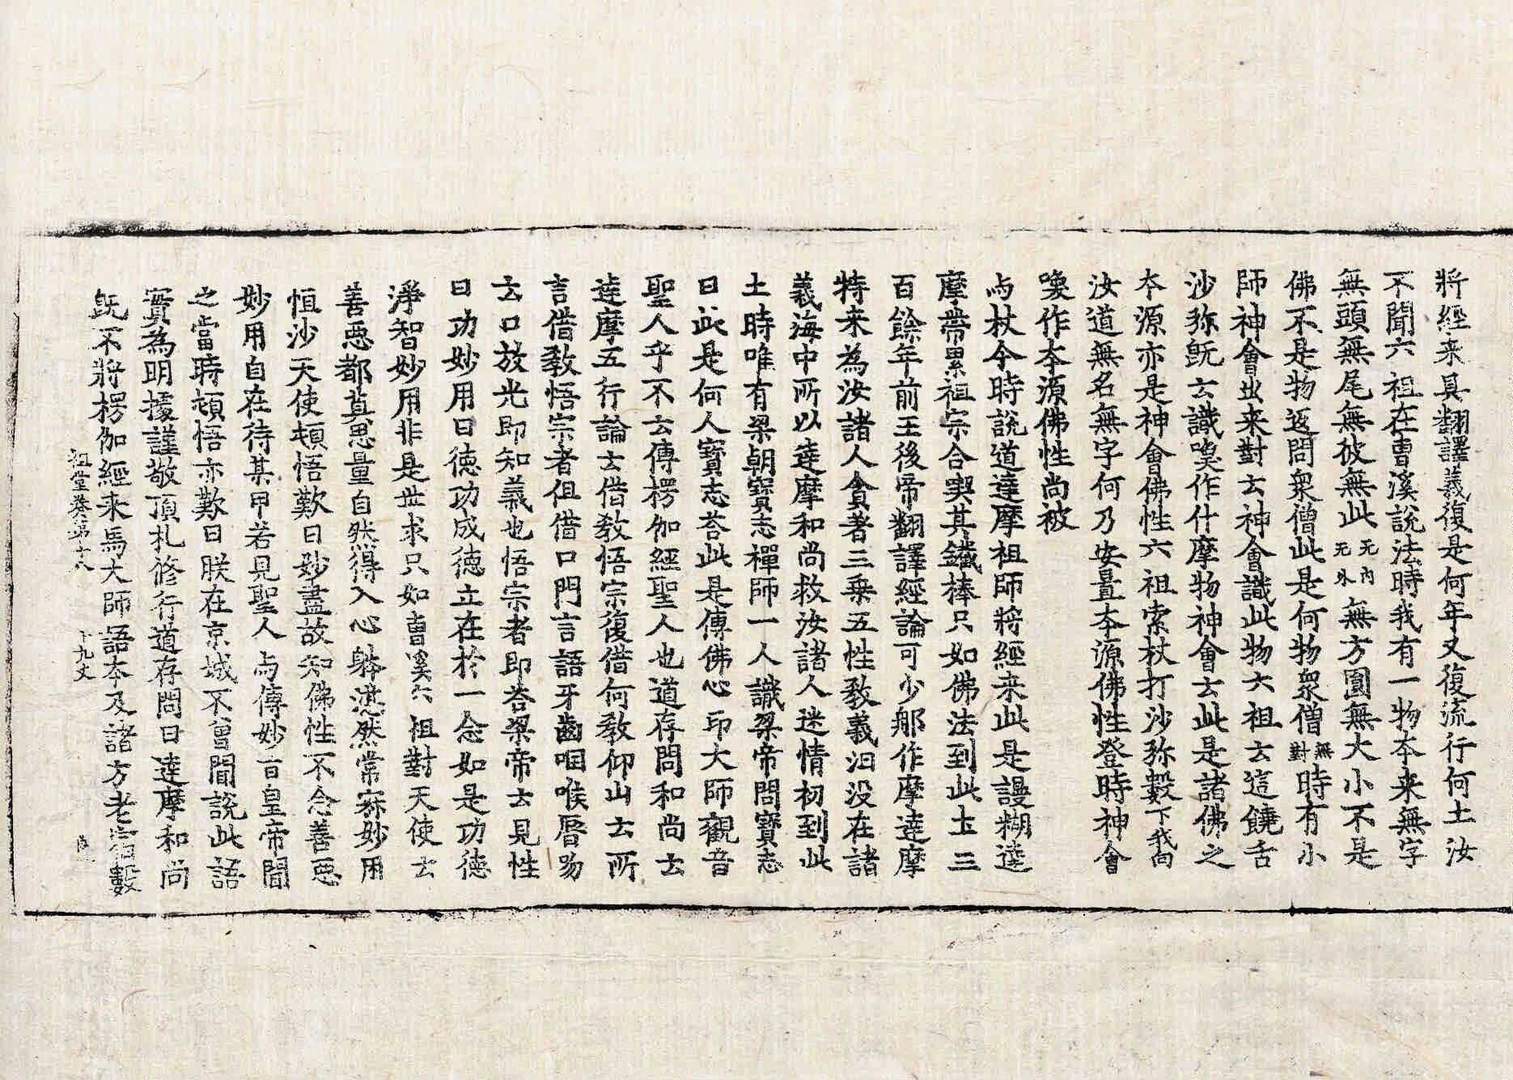 將經來真翻譯義復是何年又復流行何土汝
不聞六祖在曹溪說法時我有一物本来無字
無頭無尾無彼無此无內无外無方圓無大小不是
佛不是物返問衆僧此是何物衆僧無對時有小
師神會出来對云神會識此物六祖云這饒舌
沙弥旣云識喚作什摩物神會云此是諸佛之
本源亦是神會佛性六祖索杖打沙弥數下我向
汝道無名無字何乃安置本源佛性登時神會
喚作本源佛性尚被
与杖今時說道達摩祖師將經来此是謾糊達
摩帶累祖宗合喫其鐵棒只如佛法到此土三
百餘年前王後帝翻譯經論可少那作摩達摩
特来為汝諸人貪著三乗五性教義汩没在諸
義海中所以達摩和尚救汝諸人迷情初到此
土時唯有梁朝寶志禪師一人識梁帝問寶志
曰此是何人寶志荅此是傳佛心印大師觀音
聖人乎不云傳楞伽經聖人也道存問和尚云
達摩五行論云借教悟宗復借何教仰山云所
言借教悟宗者但借口門言語牙齒咽喉唇吻
云口放光即知義也悟宗者即荅梁帝云見性
曰功妙用曰徳功成徳立在於一念如是功徳
淨智妙用非是世求只如曹溪六祖對天使云
善惡都莫思量自然得入心躰湛然常寂妙用
恒沙天使頓悟歎曰妙盡故知佛性不念善惡
妙用自在待某甲若見聖人与傳妙旨皇帝聞
之當時頓悟亦歎曰朕在京城不曾聞說此語
實為明據謹敬頂礼修行道存問曰達摩和尚
旣不將楞伽經来馬大師語本及諸方老宿數
祖堂卷第十八 十九丈